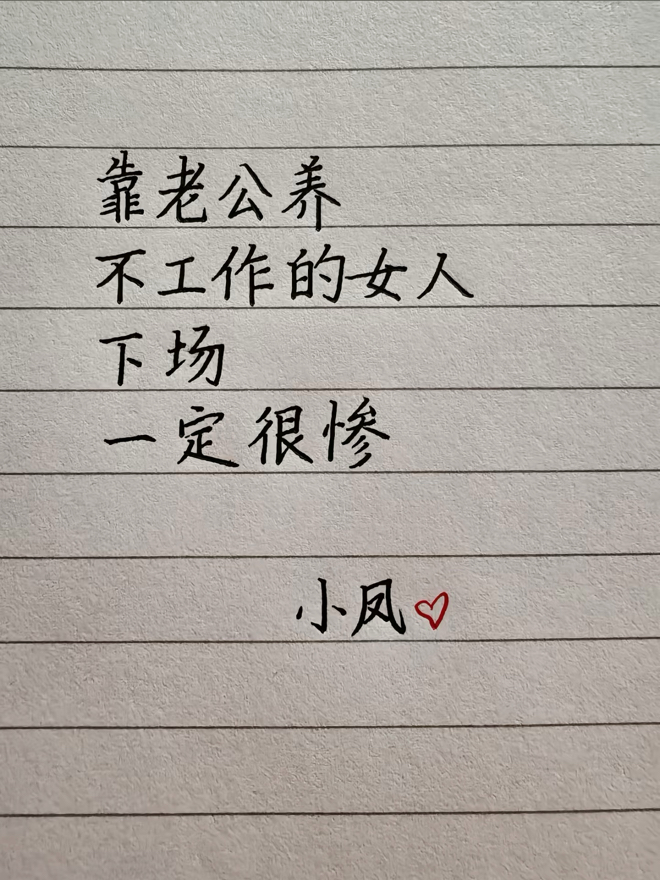 靠老公养
不工作的女人
下场
一定很惨
小凤